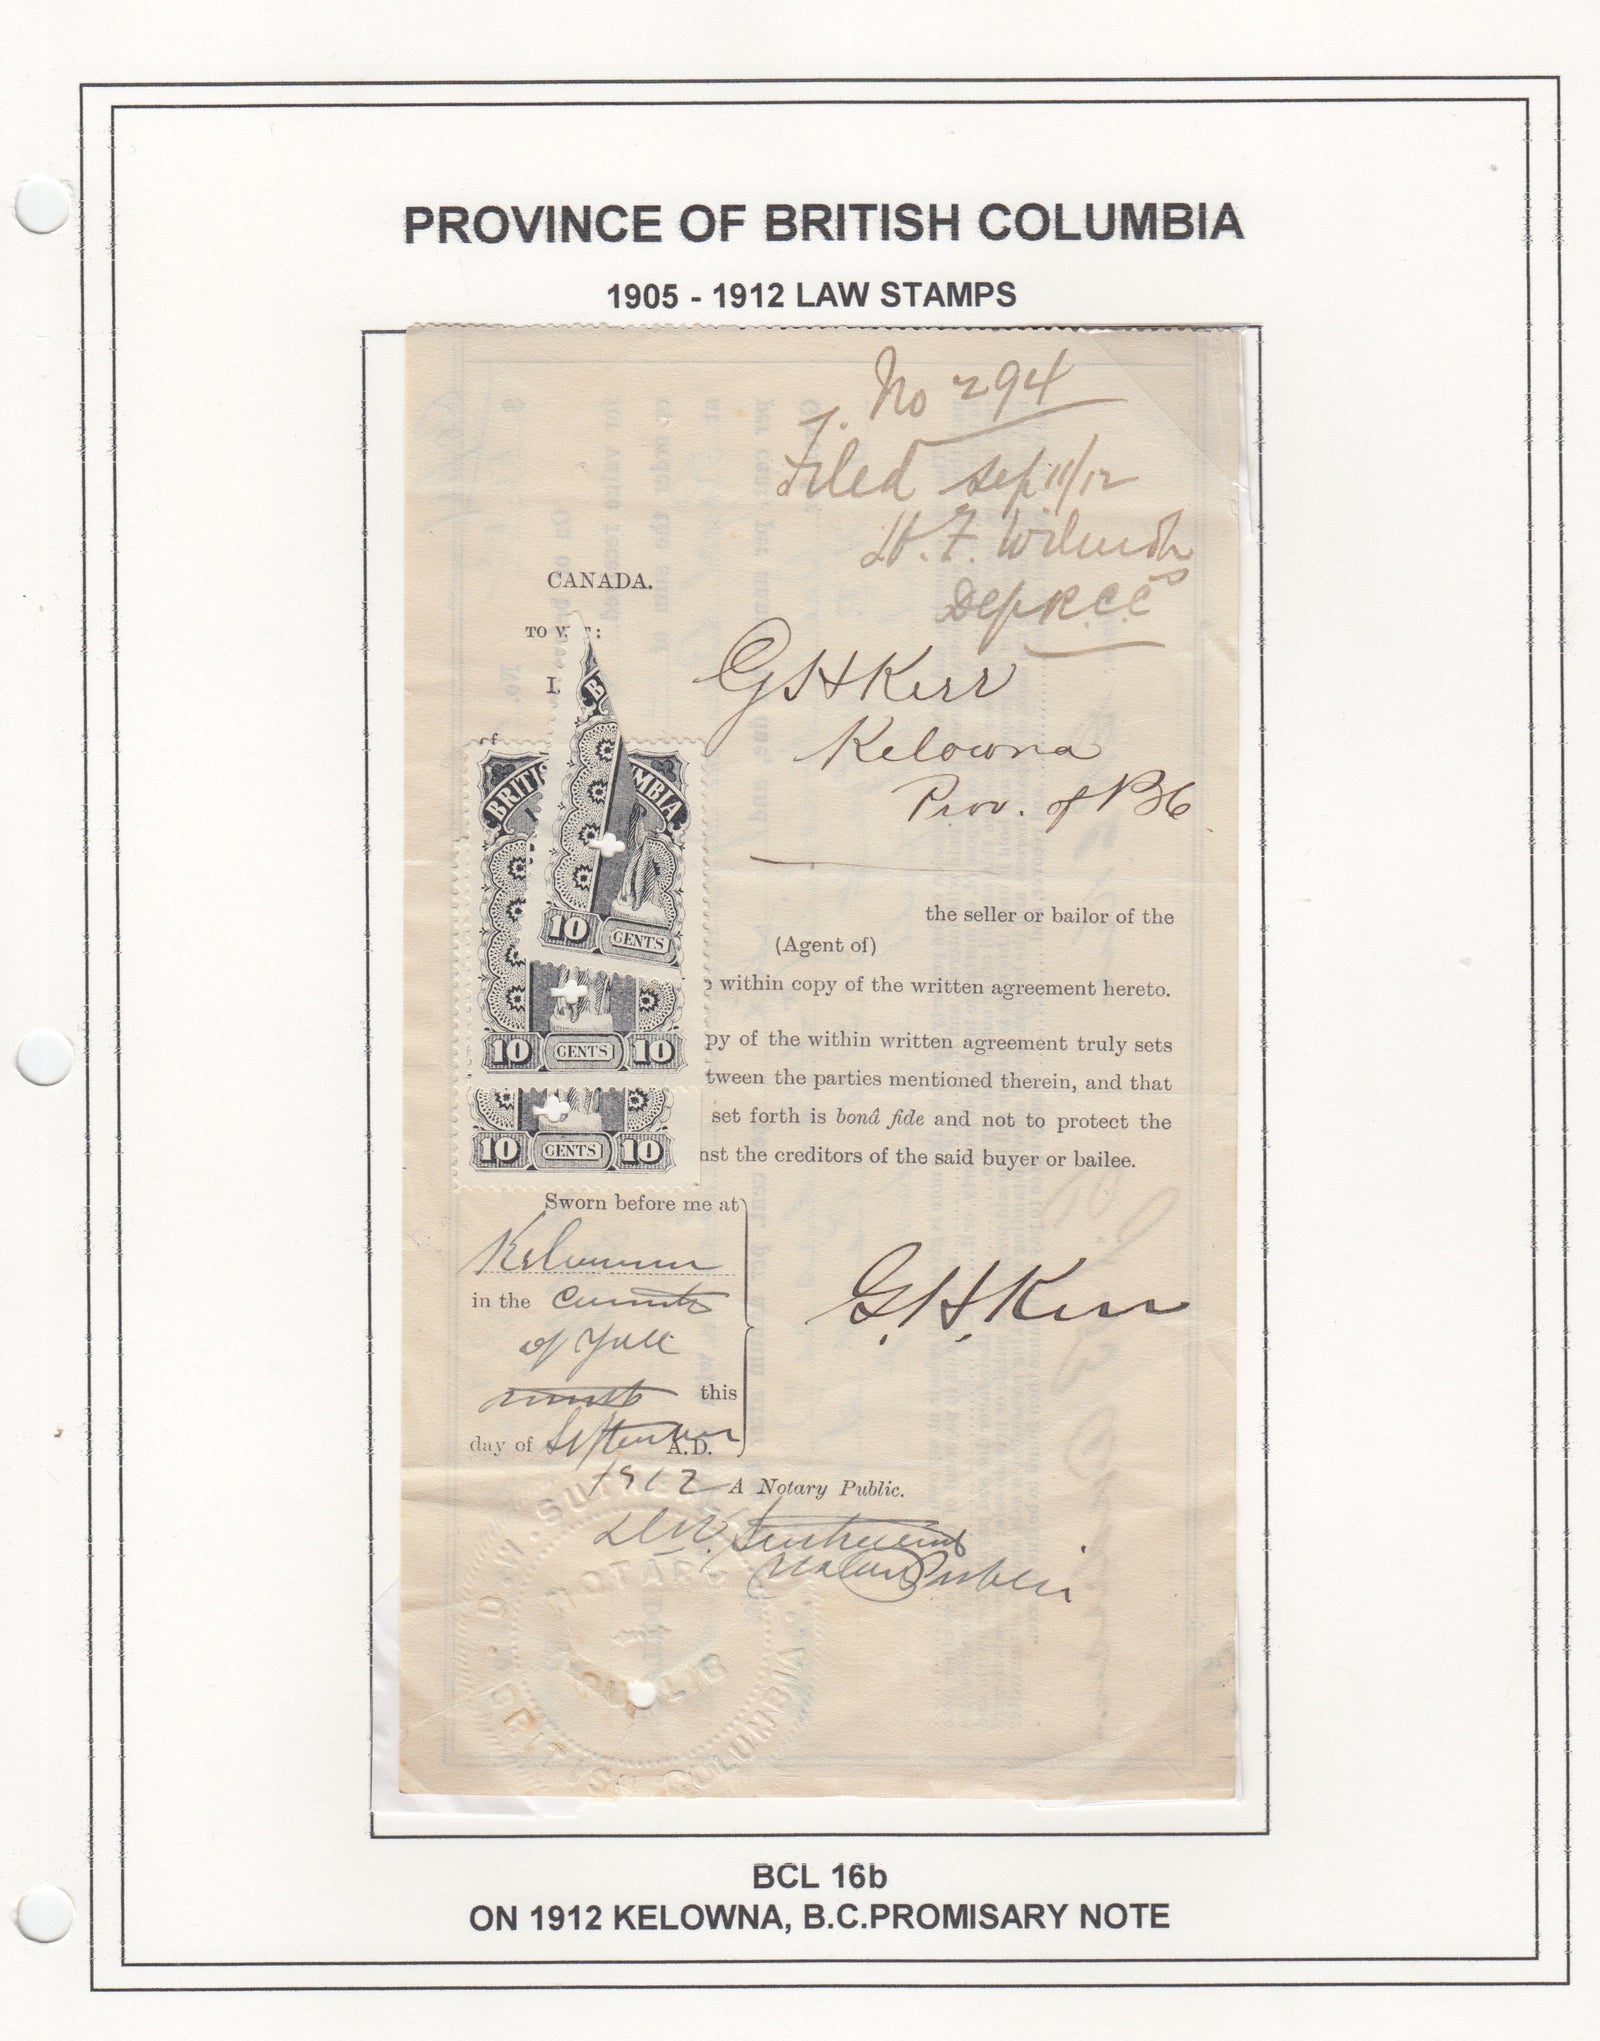 PROVINCE OF BRITISH COLUMBIA
1905 - 1912 LAW STAMPS
No 294
Filed Sep 11/12
H. F. Wilmot
Dep R.C.C
CANADA.
TO W T:
I,
G H Kerr
of
Kelowna
Prov. of BC
BRITIS
B
MBIA
10 CENTS
10 CENTS 10
10 CENTS 10
the seller or bailor of the
(Agent of)
within copy of the written agreement hereto.
py of the within written agreement truly sets
tween the parties mentioned therein, and that
set forth is bonâ fide and not to protect the
nst the creditors of the said buyer or bailee.
Sworn before me at
Kelowna
in the County
of Yale
this
day of September A.D.
1912
G. H. Kerr
A Notary Public.
Notary Public
NOTARY PUBLIC
BRITISH COLUMBIA
BCL 16b
ON 1912 KELOWNA, B.C.PROMISARY NOTE